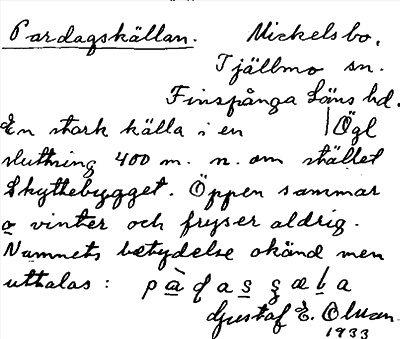 Pardagskällan. Mickelsbo,
Tjällmo sn.
Finspånga läns hd.
En stark källa i en Ögl
sluttning 400 m. n. om stället
Skyttebygget. Öppen sommar
o vinter och fryser aldrig.
Namnets betydelse okänd men
uttalas:
Gustaf E. Olsson
1933